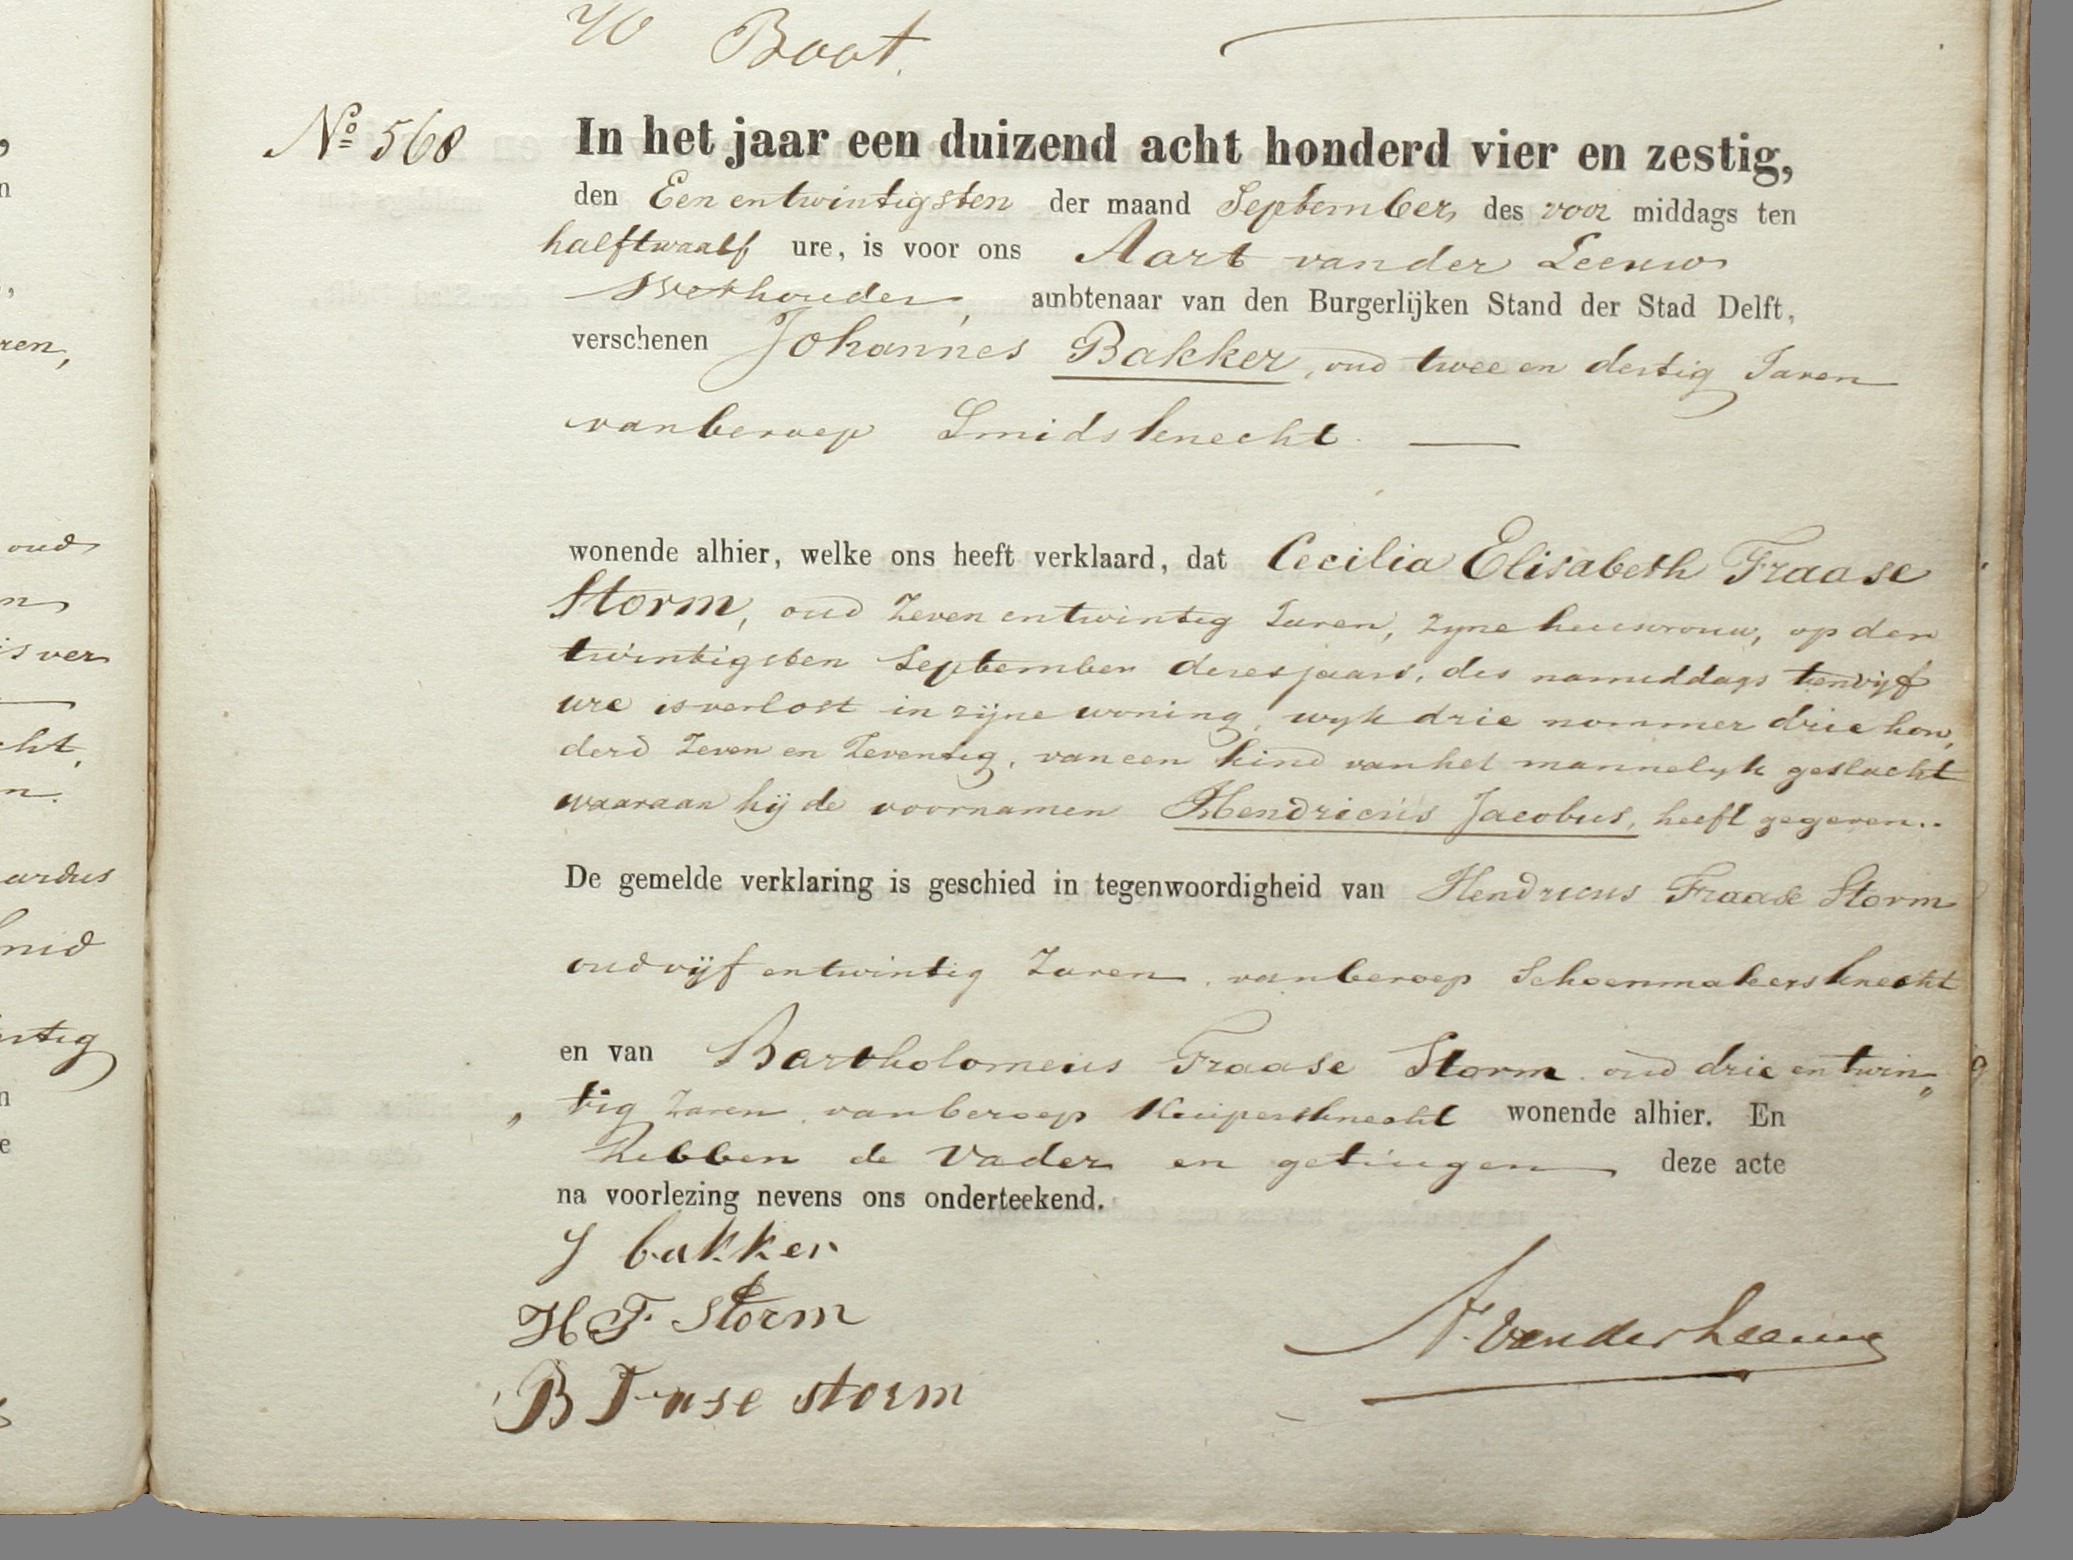 W Boot.
No 568
In het jaar een duizend acht honderd vier en zestig,
den Een en twintigsten der maand September des voor middags ten
half twaalf ure, is voor ons Aart van der Leeuw
Wethouder, ambtenaar van den Burgerlijken Stand der Stad Delft,
verschenen Johannes Bakker, oud twee en dertig Jaren
van beroep Smidsknecht. —
wonende alhier, welke ons heeft verklaard, dat Cecilia Elisabeth Fraase
Storm, oud Zeven en twintig Jaren, zyne huisvrouw, op den
twintigsten September dezes jaars, des namiddags ten vijf
ure is verlost in zijne woning, wyk drie nommer drie hon„
derd Zeven en Zeventig, van een kind van het mannelyk geslacht
waaraan hij de voornamen Hendricus Jacobus, heeft gegeven..
De gemelde verklaring is geschied in tegenwoordigheid van Hendricus Fraase Storm
oud vijf en twintig Jaren, van beroep Schoenmakersknecht
en van Bartholomeus Fraase Storm oud drie en twin„
„ tig Jaren van beroep Kuipersknecht wonende alhier. En
hebben de Vader en getuigen deze acte
na voorlezing nevens ons onderteekend.
J bakker
H F Storm
A. van der Leeuw
B Frase storm
oud
n
is ver
cht,
n.
ardus
mid
rtig
n
e
ren,